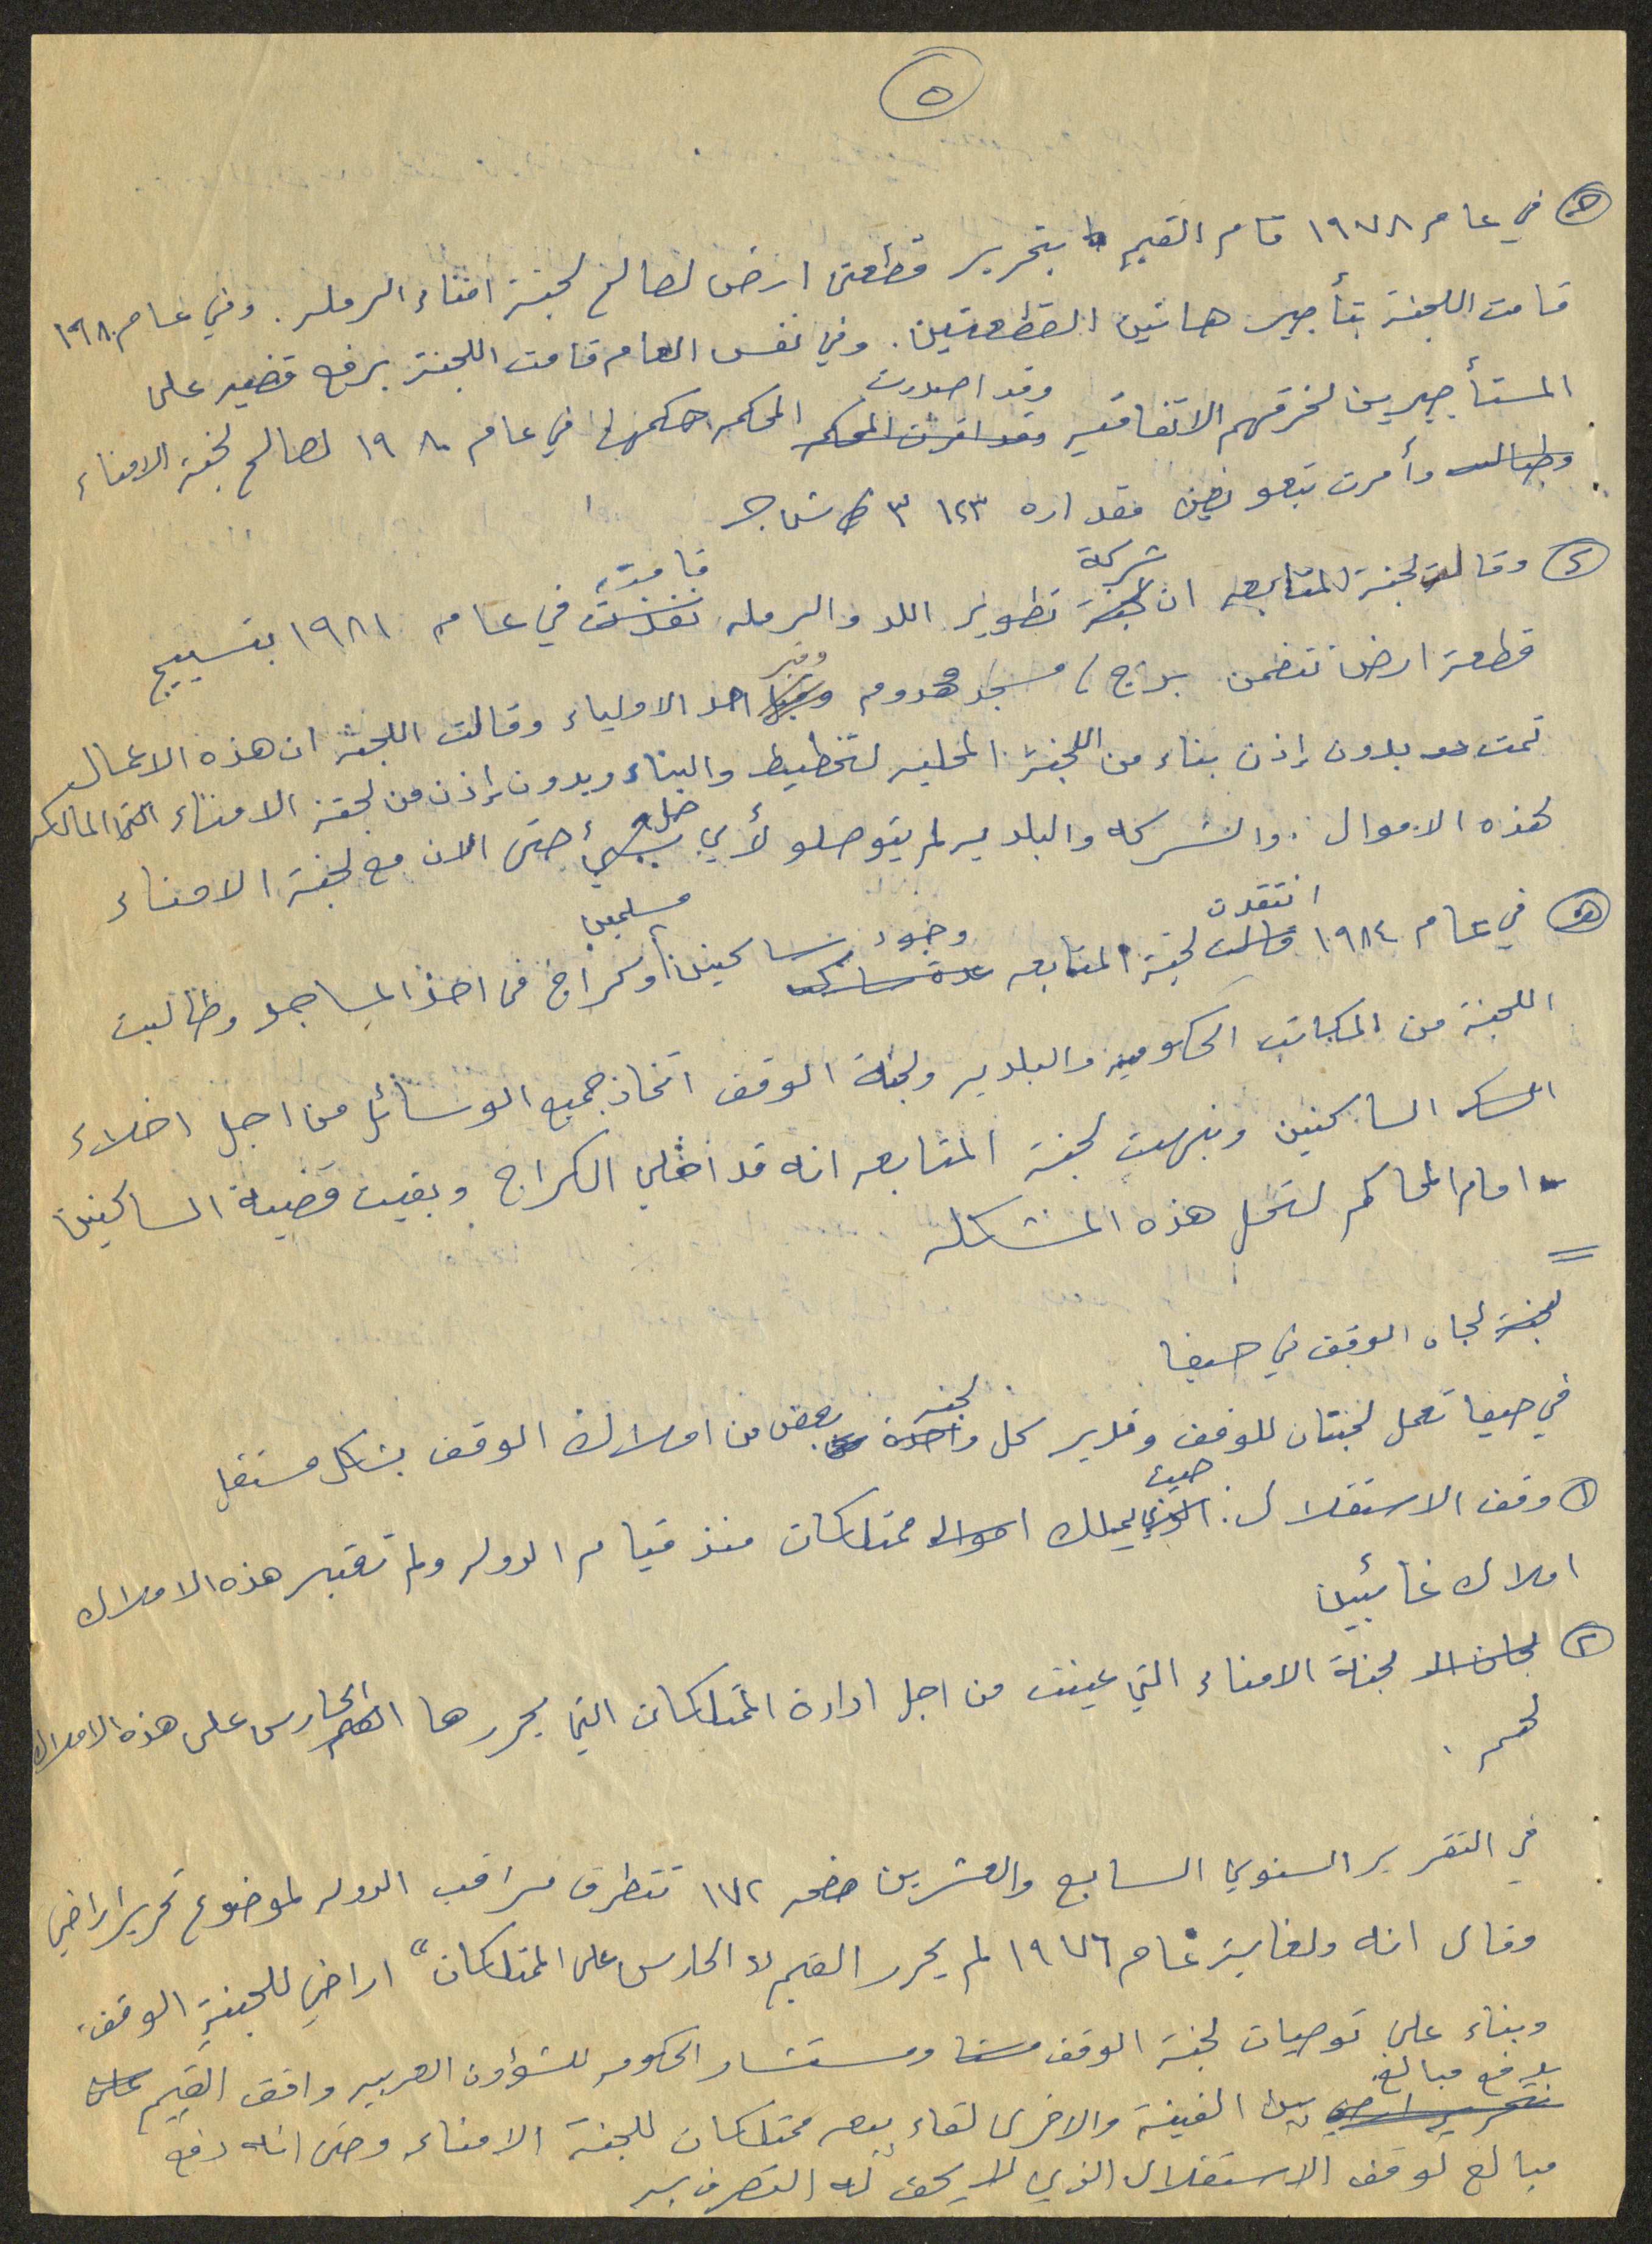 ٥
ج) في عام ١٩٧٨ قام القيم بتحرير قطعتي ارض لصالح لجنة امناء الرمله. وفي عام ١٩٨٠
قامت اللجنة بتأجير هاتين القطعتين. وفي نفس العام قامت اللجنة برفع قضيه على
المستأجرين لخرقهم الاتفاقيه وقد اصدرت المحكمه حكمها في عام ١٩٨٠ لصالح لجنة الامناء
وأمرت بتعويض مقداره ١٤٣ ٣ شاجر
د) وقالت لجنة المتابعه ان شركة تطوير اللد والرمله قامت في عام ١٩٨١ بتسييج
قطعة ارض تتضمن برج، مسجد مهدوم وقبر احد الاولياء وقالت اللجنة ان هذه الاعمال
تمت بدون إذن بناء من اللجنة المحليه لتخطيط والبناء وبدون إذن من لجنة الامناء المالكه
لهذه الاموال. والشركه والبلديه لم يتوصلو لأي حل حتى الان مع لجنة الامناء
هـ) في عام ١٩٨٤ انتقدت لجنة المتابعه وجود ساكنين مسلمين وكراج في احد المساجد وطالبت
اللجنة من المكاتب الحكوميه والبلديه ولجنة الوقف اتخاذ جميع الوسائل من اجل اخلاء
الساكنين ونبهت لجنة المتابعه انه قد اخلي الكراج وبقيت قضية الساكنين
امام المحاكم لتحل هذه المشكله
=
لجان الوقف في حيفا
في حيفا تعمل لجنتان للوقف وتدير كل لجنه بعض من املاك الوقف بشكل مستقل
١) وقف الاستقلال: حيث يملك ممتلكات منذ قيام الدوله ولم تعتبر هذه الاملاك
املاك غائبين
٢) لجنة الامناء التي عينت من اجل ادارة الممتلكات التي يحررها الحارس على هذه الاملاك
لهم.
في التقرير السنوي السابع والعشرين صفحه ١٧٢ تتطرق مراقب الدوله لموضوع تحرير اراضي
وقال انه ولغاية عام ١٩٧٦ لم يحرر القيم "الحارس على الممتلكات" اراضي للجنة الوقف.
وبناء على توصيات لجنة الوقف ومستشار الحكومه للشؤون العربيه وافق القيم
بدفع مبالغ بين الفينة والاخرى لقاء بيعه ممتلكات للجنة الامناء وحتى انه دفع
مبالغ لوقف الاستقلال الذي لا يحق له التصرف به